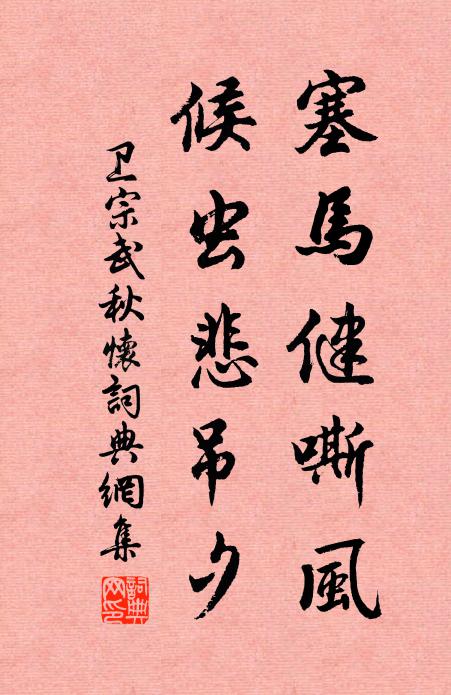 塞馬健嘶風
候虫悲吊夕
卫宗武秋懷詞典網集
詞典网印